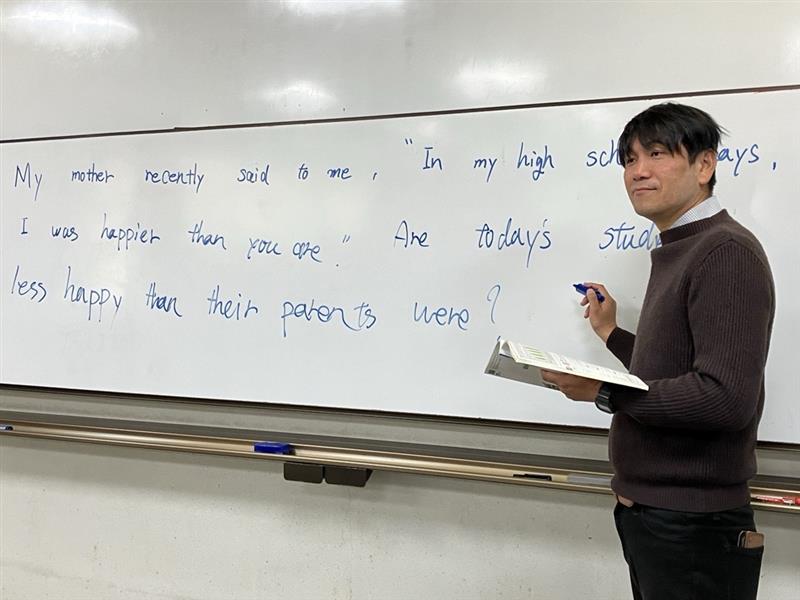 My mother recently said to me, "In my high days,
I was happier than you are." Are today's
less happy than their parents were?